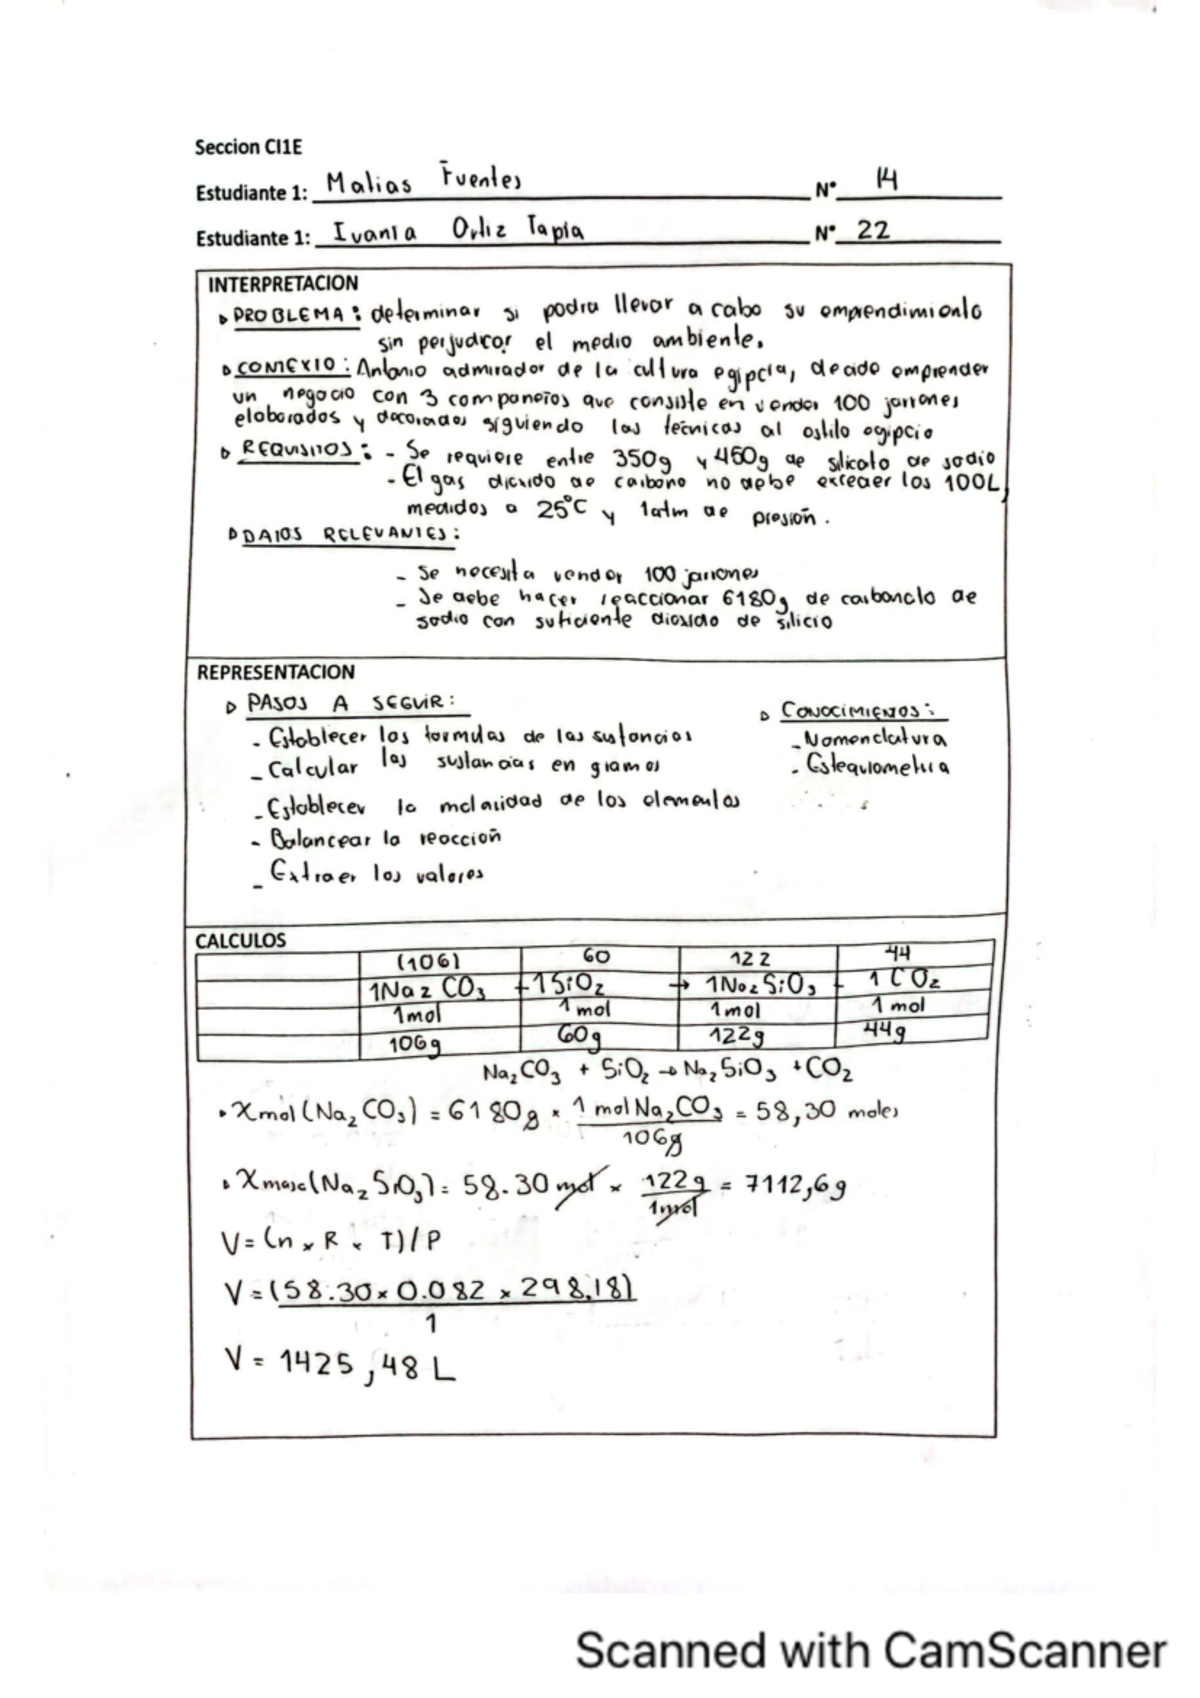 Seccion CI1E
Estudiante 1: Matias Fuentes N° 14
Estudiante 1: Ivania Ortiz Tapia N° 22
INTERPRETACION
PROBLEMA: determinar si podra llevar a cabo su emprendimiento
sin perjudicar el medio ambiente.
CONTEXTO: Antonio admirador de la cultura egipcia, decide emprender
un negocio con 3 compañeros que consiste en vender 100 jarrones
elaborados y decorados siguiendo las técnicas al estilo egipcio
REQUISITOS: - Se requiere entre 350g y 450g de silicato de sodio
- El gas dioxido de carbono no debe exceder los 100L,
medidos a 25°C y 1atm de presión.
DATOS RELEVANTES:
- Se necesita vender 100 jarrones
- Se debe hacer reaccionar 6180g de carbonato de
sodio con suficiente dioxido de silicio
REPRESENTACION
PASOS A SEGUIR:
- Establecer las formulas de las sustancias
- Calcular las sustancias en gramos
- Establecer la molaridad de los elementos
- Balancear la reacción
- Extraer los valores
CONOCIMIENTOS:
- Nomenclatura
- Estequiometria
CALCULOS
(106) 60 122 44
1Na2CO3 + 1SiO2 → 1Na2SiO3 + 1CO2
1mol 1mol 1mol 1mol
106g 60g 122g 44g
Na2CO3 + SiO2 → Na2SiO3 + CO2
• Xmol(Na2CO3) = 6180g × 1 mol Na2CO3 / 106g = 58,30 moles
• Xmasa(Na2SiO3) = 58.30 mol × 122g / 1mol = 7112,6g
V = (n × R × T)/P
V = (58.30 × 0.082 × 298.18) / 1
V = 1425,48 L
Scanned with CamScanner